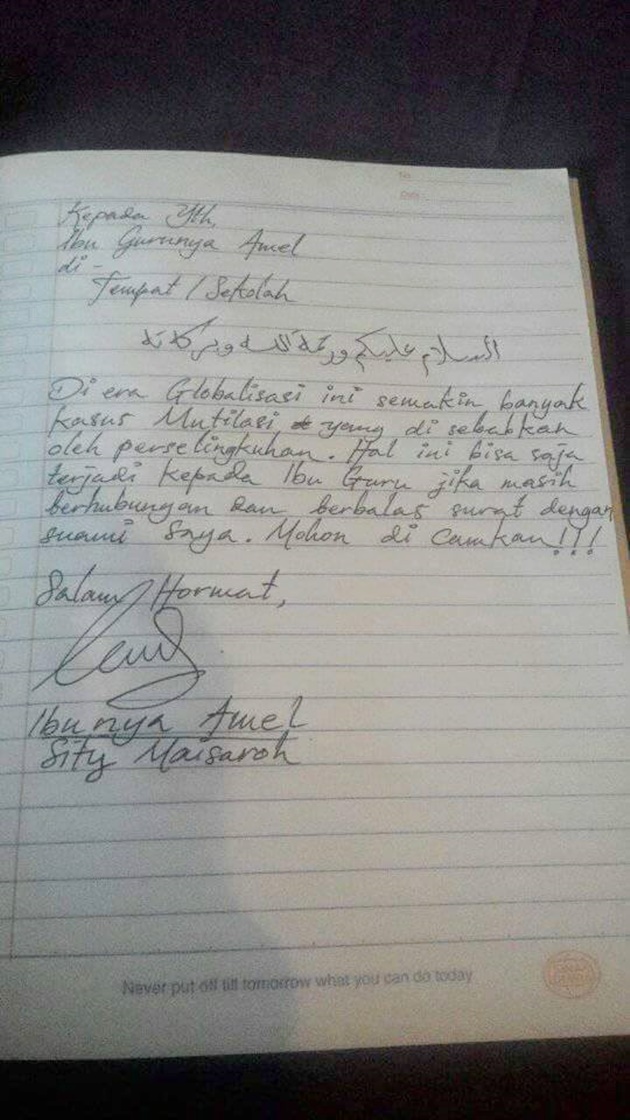 No
Date
Kepada Yth,
Ibu Gurunya Amel
di -
Tempat / Sekolah
السلام عليكم ورحمة الله وبركاته
Di era Globalisasi ini semakin banyak
kasus Mutilasi yang di sebabkan
oleh perselingkuhan. Hal ini bisa saja
terjadi kepada Ibu Guru jika masih
berhubungan dan berbalas surat dengan
suami saya. Mohon di camkan!!!
Salam Hormat,
Ibunya Amel
Sity Maisaroh
Never put off till tomorrow what you can do today